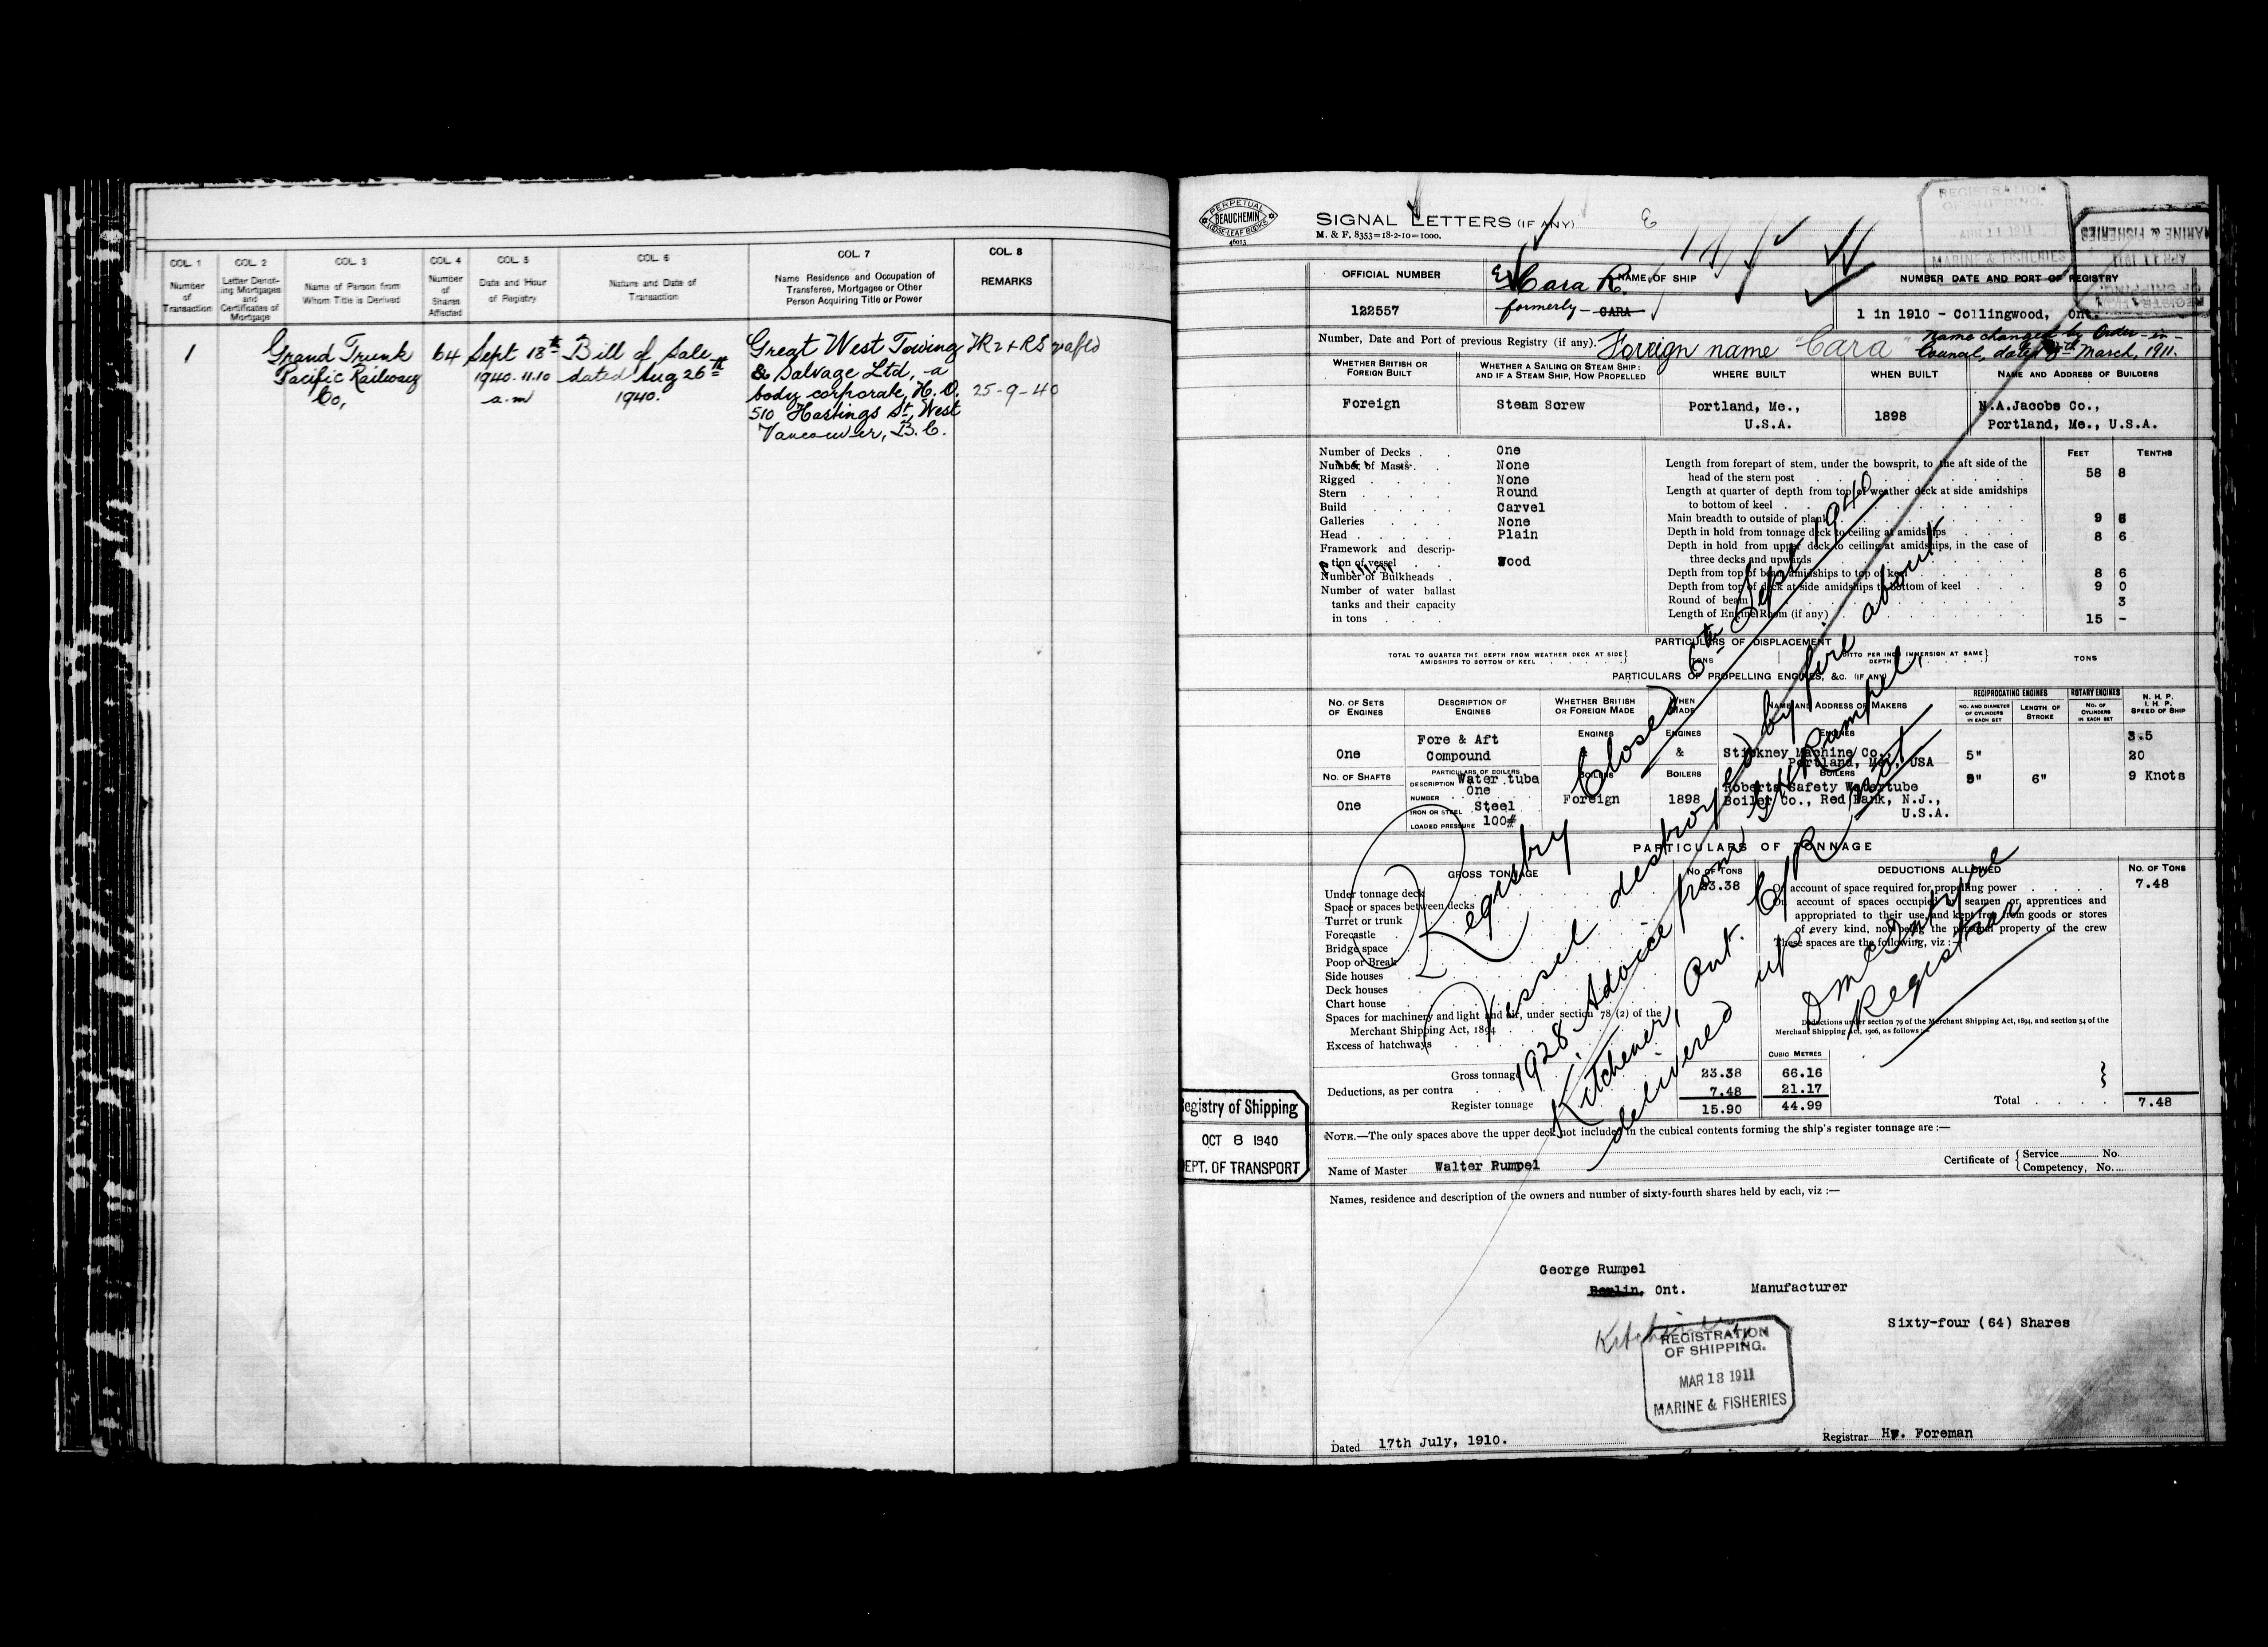 COL. 1
Number
of
Transaction
COL. 2
Letter Denot-
ing Mortgages
and
Certificates of
Mortgage
COL. 3
Name of Person from
Whom Title is Derived
COL. 4
Number
of
Shares
Affected
COL. 5
Date and Hour
of Registry
COL. 6
Nature and Date of
Transaction
COL. 7
Name Residence and Occupation of
Transferee, Mortgagee or Other
Person Acquiring Title or Power
COL. 8
REMARKS
1
Grand Trunk
Pacific Railway
Co,
64
Sept 18th
1940. 11.10
a.m
Bill of Sale
dated Aug 26th
1940.
Great West Towing
& Salvage Ltd, a
body corporate, H.O.
510 Hastings St, West
Vancouver, B.C.
25-9-40
PERPETUAL
BEAUCHEMIN
LOOSE LEAF BOOKS
46013
SIGNAL LETTERS (IF ANY)
M. & F. 8353=18-2-10=1000.
REGISTRATION
OF SHIPPING.
APR 11 1911
MARINE & FISHERIES
OFFICIAL NUMBER
122557
NAME OF SHIP
Cara R.
formerly - CARA
NUMBER DATE AND PORT OF REGISTRY
1 in 1910 - Collingwood, Ont.
Number, Date and Port of previous Registry (if any).
Foreign name "Cara"
Name changed by Order-in-
Council, dated March, 1911.
WHETHER BRITISH OR
FOREIGN BUILT
WHETHER A SAILING OR STEAM SHIP:
AND IF A STEAM SHIP, HOW PROPELLED
WHERE BUILT
WHEN BUILT
NAME AND ADDRESS OF BUILDERS
Foreign
Steam Screw
Portland, Me.,
U.S.A.
1898
N.A.Jacobs Co.,
Portland, Me., U.S.A.
Number of Decks One
Number of Masts None
Rigged None
Stern Round
Build Carvel
Galleries None
Head Plain
Framework and descrip-
tion of vessel Wood
Number of Bulkheads
Number of water ballast
tanks and their capacity
in tons
FEET TENTHS
Length from forepart of stem, under the bowsprit, to the aft side of the
head of the stern post 58 8
Length at quarter of depth from top of weather deck at side amidships
to bottom of keel
Main breadth to outside of plank 9 6
Depth in hold from tonnage deck to ceiling at amidships 8 6
Depth in hold from upper deck to ceiling at amidships, in the case of
three decks and upwards
Depth from top of beam amidships to top of keel 8 6
Depth from top of deck at side amidships to bottom of keel 9 0
Round of beam 3
Length of Engine Room (if any) 15 -
PARTICULARS OF DISPLACEMENT
TOTAL TO QUARTER THE DEPTH FROM WEATHER DECK AT SIDE
AMIDSHIPS TO BOTTOM OF KEEL
TONS
DITTO PER INCH IMMERSION AT SAME
DEPTH
TONS
PARTICULARS OF PROPELLING ENGINES, &C. (IF ANY)
NO. OF SETS
OF ENGINES
DESCRIPTION OF
ENGINES
WHETHER BRITISH
OR FOREIGN MADE
WHEN
MADE
NAME AND ADDRESS OF MAKERS
RECIPROCATING ENGINES
NO. AND DIAMETER
OF CYLINDERS
IN EACH SET
LENGTH OF
STROKE
ROTARY ENGINES
NO. OF
CYLINDERS
IN EACH SET
N. H. P.
I. H. P.
SPEED OF SHIP
One
Fore & Aft
Compound
ENGINES
&
ENGINES
&
ENGINES
Stickney Machine Co.,
Portland, Me., USA
5"
3.5
20
NO. OF SHAFTS
One
PARTICULARS OF BOILERS
DESCRIPTION Water tube
NUMBER One
IRON OR STEEL Steel
LOADED PRESSURE 100#
BOILERS
Foreign
BOILERS
1898
BOILERS
Roberts Safety Watertube
Boiler Co., Red Bank, N.J.,
U.S.A.
9"
6"
9 Knots
PARTICULARS OF TONNAGE
GROSS TONNAGE
NO. OF TONS
Under tonnage deck 23.38
Space or spaces between decks
Turret or trunk
Forecastle
Bridge space
Poop or Break
Side houses
Deck houses
Chart house
Spaces for machinery and light and air, under section 78 (2) of the
Merchant Shipping Act, 1894
Excess of hatchways
Gross tonnage
Deductions, as per contra
Register tonnage
23.38
7.48
15.90
CUBIC METRES
66.16
21.17
44.99
DEDUCTIONS ALLOWED
NO. OF TONS
On account of space required for propelling power 7.48
On account of spaces occupied by seamen or apprentices and
appropriated to their use, and kept free from goods or stores
of every kind, not being the personal property of the crew
These spaces are the following, viz :—
Deductions under section 79 of the Merchant Shipping Act, 1894, and section 54 of the
Merchant Shipping Act, 1906, as follows :—
Total 7.48
Registry Closed 6th Sept 1940
Vessel destroyed by fire about
1928. Advice from Rumpel,
Kitchener, Ont. C/R not
delivered up.
Registrar
Registry of Shipping
OCT 8 1940
DEPT. OF TRANSPORT
NOTE.—The only spaces above the upper deck not included in the cubical contents forming the ship's register tonnage are :—
Name of Master Walter Rumpel
Certificate of Service No.
Competency, No.
Names, residence and description of the owners and number of sixty-fourth shares held by each, viz :—
George Rumpel
Berlin, Ont. Manufacturer
Kitchener
Sixty-four (64) Shares
REGISTRATION
OF SHIPPING.
MAR 13 1911
MARINE & FISHERIES
Dated 17th July, 1910.
Registrar Hy. Foreman